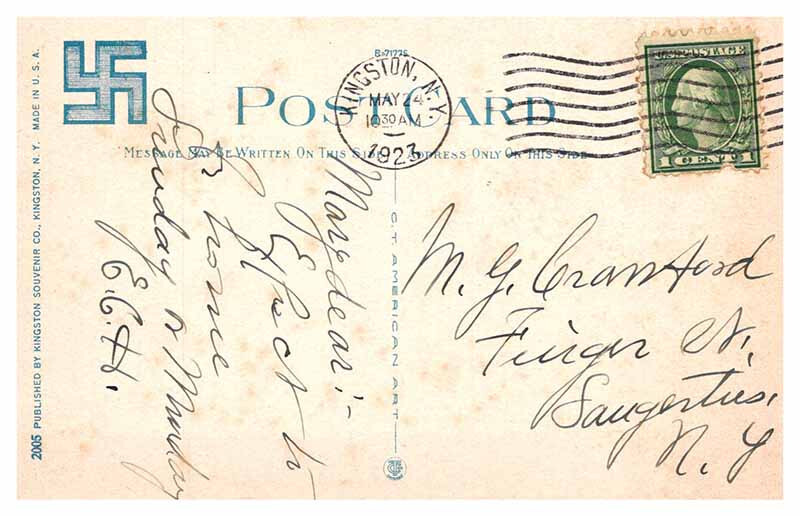 2005 PUBLISHED BY KINGSTON SOUVENIR CO., KINGSTON, N. Y. MADE IN U. S. A.
B-71775
POST CARD
KINGSTON, N.Y.
MAY 24
10 30 AM
1923
U.S. POSTAGE
1 CENT 1
MESSAGE MAY BE WRITTEN ON THIS SIDE
ADDRESS ONLY ON THIS SIDE
C. T. AMERICAN ART
Mary dear:-
Expect to
be home
Sunday or Monday
E.C.H.
M. G. Crawford
Finger St.,
Saugerties,
N. Y